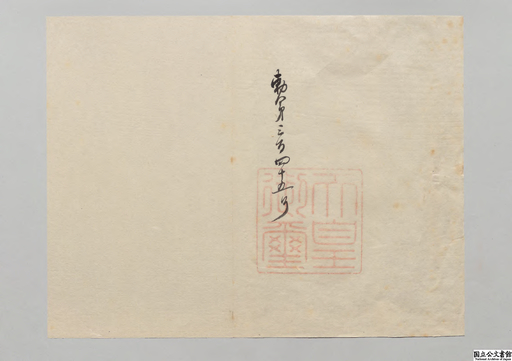 勅第三百四十五号
天皇
御璽
国立公文書館
National Archives of Japan